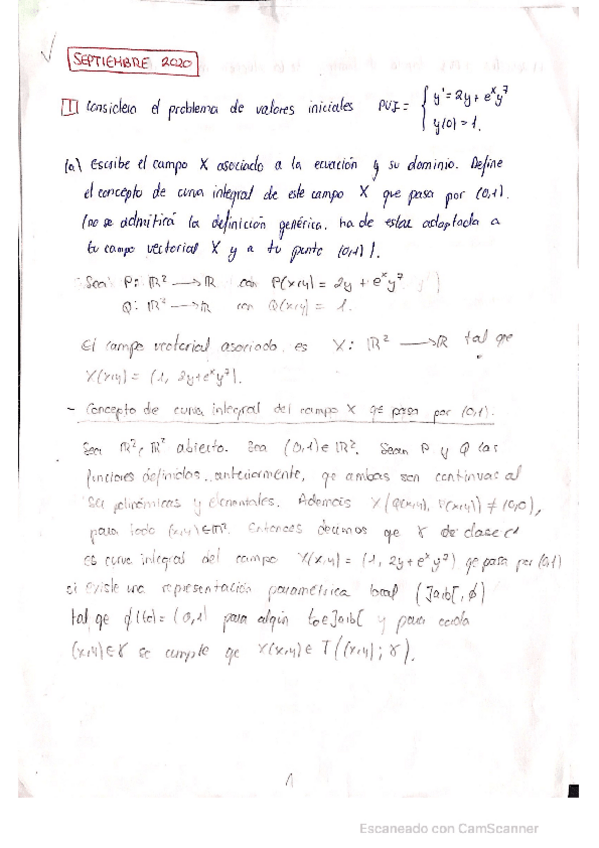 SEPTIEMBRE 2020
1 Considera el problema de valores iniciales PVI = { y' = 2y + e^x y^7
y(0) = 1.
(a) Escribe el campo X asociado a la ecuación y su dominio. Define
el concepto de curva integral de este campo X que pasa por (0,1).
(no se admitirá la definición genérica, ha de estar adaptada a
tu campo vectorial X y a tu punto (0,1)).
Sea P: ℝ² → ℝ con P(x,y) = 2y + e^x y^7
Q: ℝ² → ℝ con Q(x,y) = 1.
El campo vectorial asociado es X: ℝ² → ℝ tal que
X(x,y) = (1, 2y+e^x y^7).
- Concepto de curva integral del campo X qe pasa por (0,1).
Sea ℝ² ⊂ ℝ² abierto. Sea (0,1) ∈ ℝ². Sean P y Q las
funciones definidas anteriormente, qe ambas son continuas al
ser polinómicas y elementales. Además X(Q(x,y), P(x,y)) ≠ (0,0),
para todo (x,y) ∈ ℝ². Entonces decimos que γ de clase C¹
es curva integral del campo X(x,y) = (1, 2y+e^x y^7) qe pasa por (0,1)
si existe una representación paramétrica local (]a,b[, ϕ)
tal qe ϕ(t₀) = (0,1) para algún t₀∈]a,b[ y para cada
(x,y) ∈ γ se cumple qe X(x,y) ∈ T((x,y); γ).
1
Escaneado con CamScanner